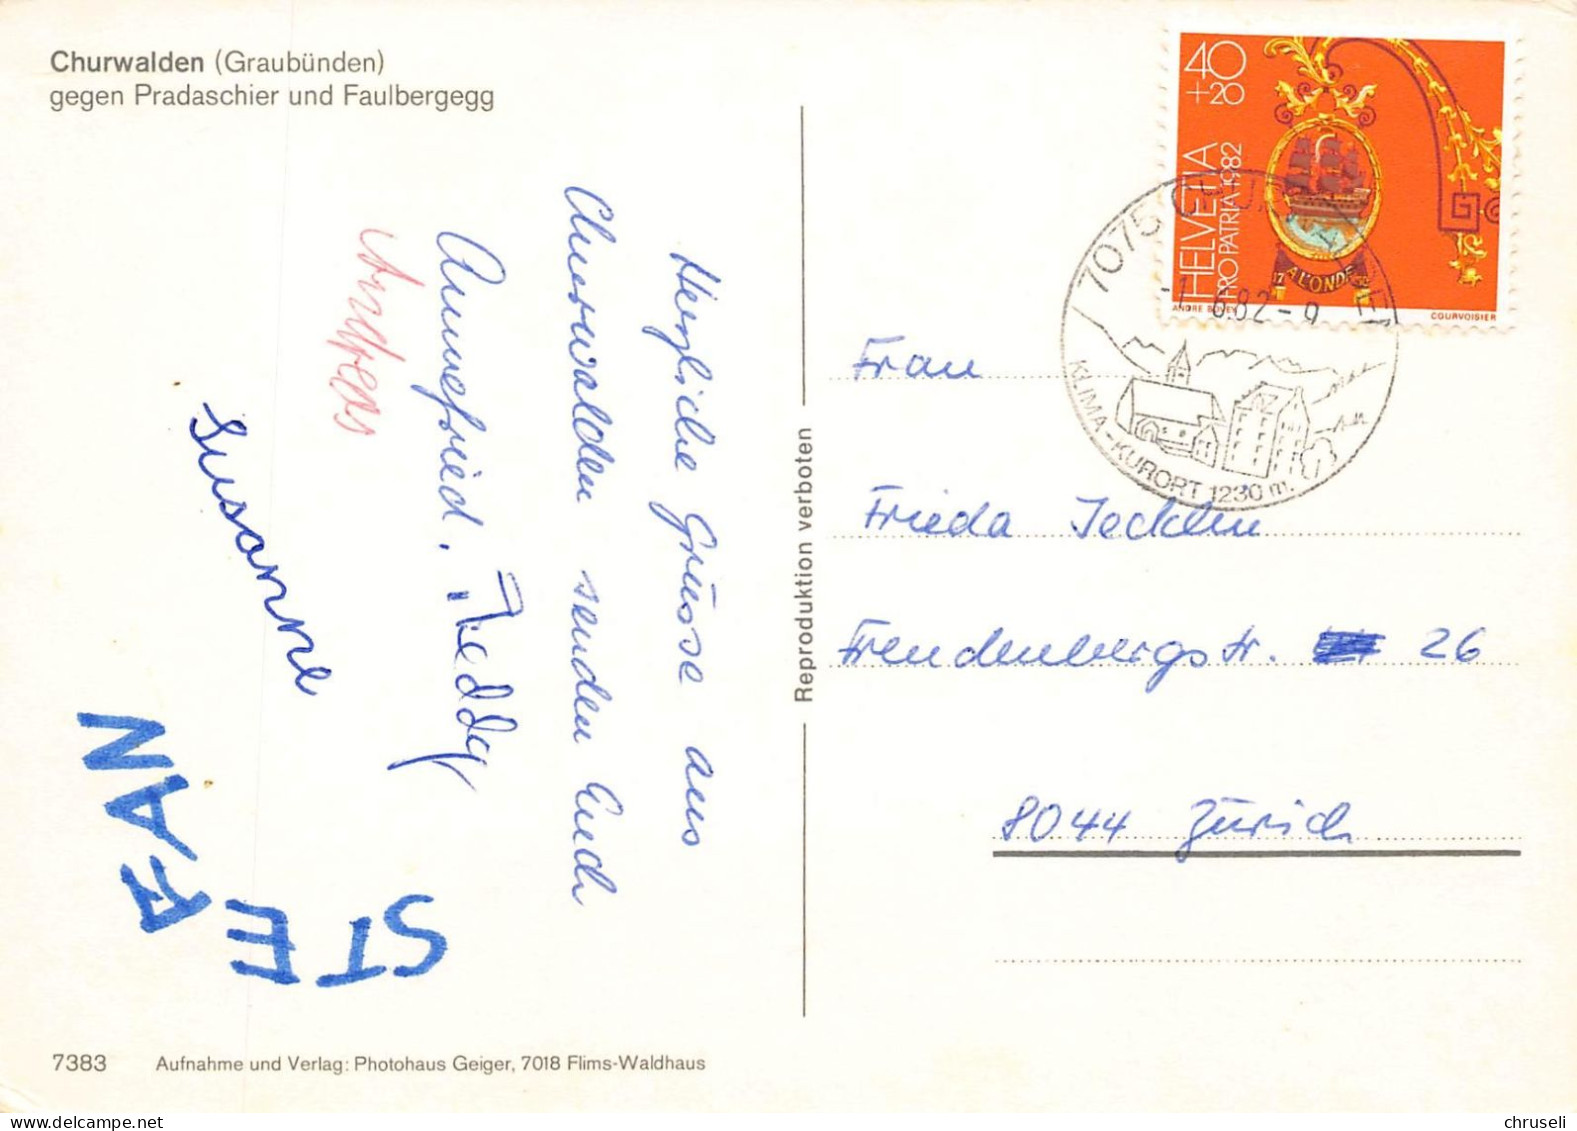 Churwalden (Graubünden)
gegen Pradaschier und Faulbergegg
Herzliche Grüsse aus
Churwalden senden Euch
Annefried, Freddy
Andreas
Susanne
STEFAN
7383 Aufnahme und Verlag: Photohaus Geiger, 7018 Flims-Waldhaus
Reproduktion verboten
40
+20
HELVETIA
PRO PATRIA 1982
A L'ONDE
COURVOISIER
7075 CHURWALDEN
-1.6.82-9
KLIMA-KURORT 1230 m.
Frau
Frieda Jecklin
Freudenbergstr. 26
8044 Zürich
chruseli